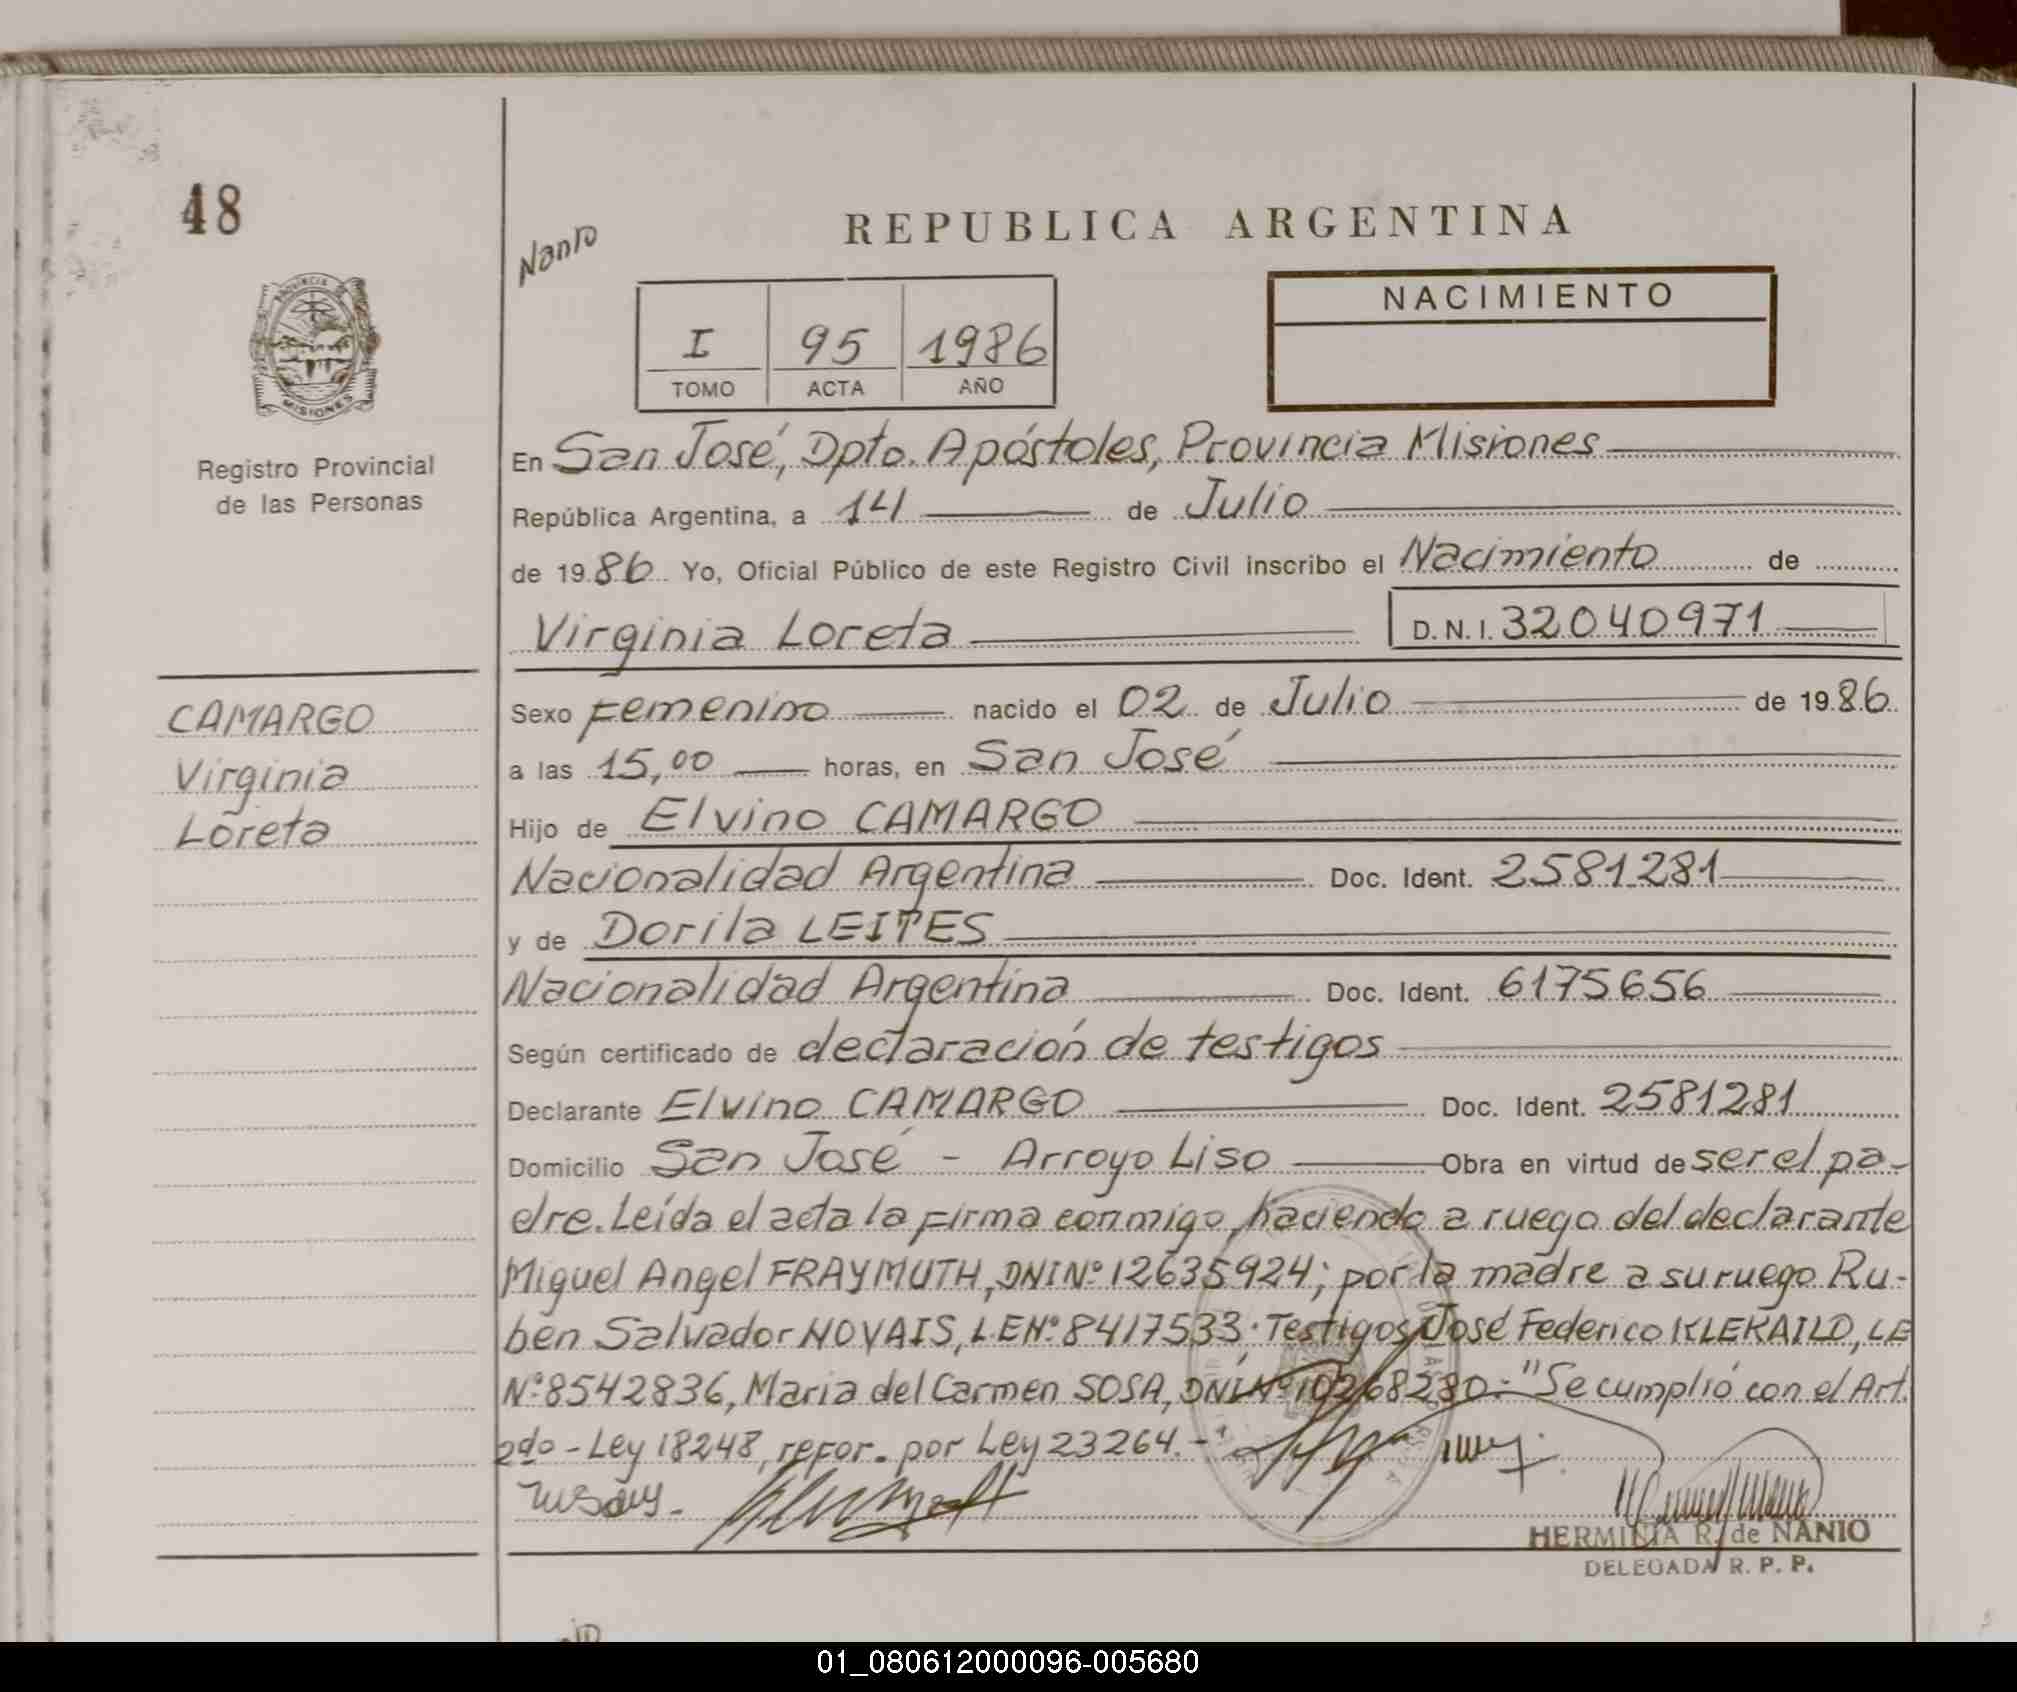 48
Nanio
REPUBLICA ARGENTINA
NACIMIENTO
I 95 1986
TOMO ACTA AÑO
PROVINCIA DE
MISIONES
Registro Provincial
de las Personas
En San José, Dpto. Apóstoles, Provincia Misiones
República Argentina, a 14 de Julio
de 1986 Yo, Oficial Público de este Registro Civil inscribo el Nacimiento de
Virginia Loreta D. N. I. 32040971
CAMARGO
Virginia
Loreta
Sexo Femenino nacido el 02 de Julio de 1986
a las 15,00 horas, en San José
Hijo de Elvino CAMARGO
Nacionalidad Argentina Doc. Ident. 2581281
y de Dorila LEITES
Nacionalidad Argentina Doc. Ident. 6175656
Según certificado de declaración de testigos
Declarante Elvino CAMARGO Doc. Ident. 2581281
Domicilio San José - Arroyo Liso Obra en virtud de ser el pa-
dre. Leída el acta la firma conmigo, haciendo a ruego del declarante
Miguel Angel FRAYMUTH, DNI Nº 12635924; por la madre a su ruego Ru-
ben Salvador NOVAIS, L.E Nº 8417533. Testigos José Federico KLEKAILO, LE
Nº 8542836, Maria del Carmen SOSA, DNI Nº 10268280.- "Se cumplió con el Art.
2do - Ley 18248, refor. por Ley 23264.-
HERMINIA R. de NANIO
DELEGADA R. P. P.
01_080612000096-005680